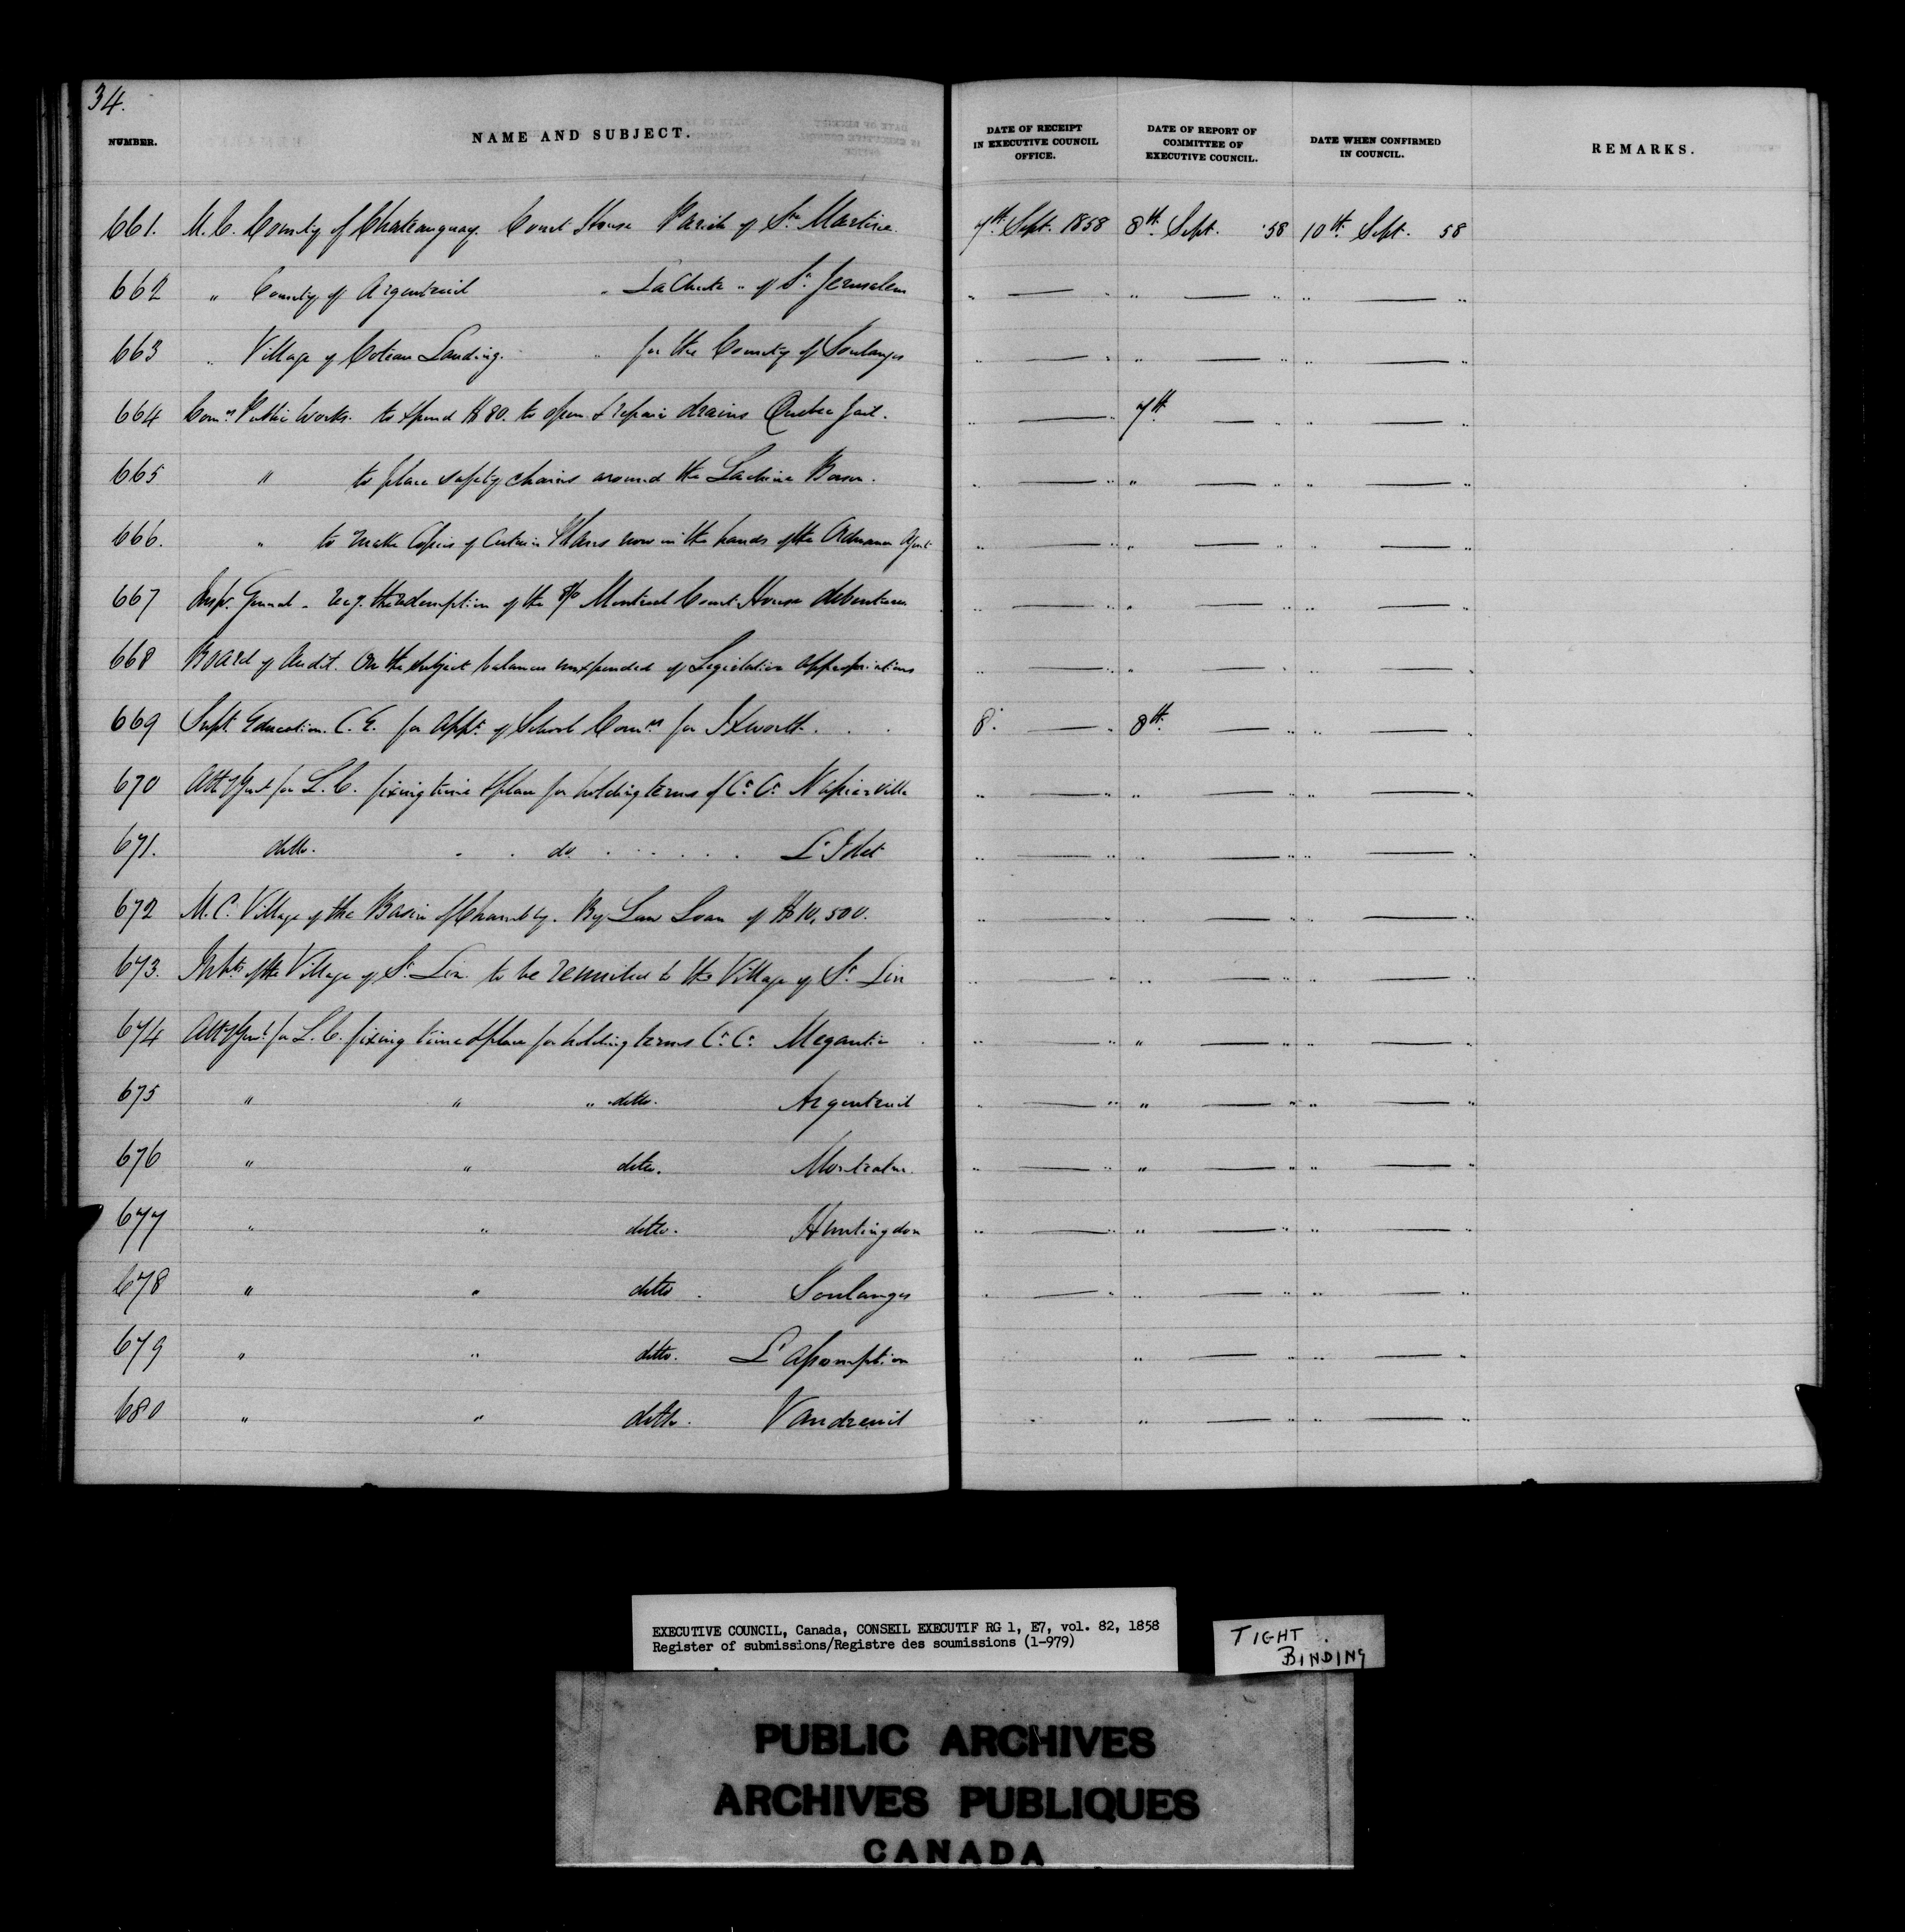 34.
NUMBER. NAME AND SUBJECT. DATE OF RECEIPT IN EXECUTIVE COUNCIL OFFICE. DATE OF REPORT OF COMMITTEE OF EXECUTIVE COUNCIL. DATE WHEN CONFIRMED IN COUNCIL. REMARKS.
661. M. C. County of Chateauguay. Court House Parish of Ste Martine. 7th Sept. 1858 8th Sept. '58 10th Sept. 58
662 " County of Argenteuil " La Chute " of St. Jerusalem " — " " — " " — "
663 " Village of Coteau Landing. " for the County of Soulanges " — " " — " " — "
664 Comrs Public Works. to spend $80. to open & repair drains Quebec Jail. " — " 7th — " " — "
665 " to place safety chains around the Lachine Basin. " — " " — " " — "
666. " to make Copies of Certain Plans now in the hands of the Ordnance Agent " — " " — " " — "
667 Inspr. General - the redemption of the Montreal Court House debentures " — " " — " " — "
668 Board of Audit. On the subject balances unexpended of Legislative appropriations " — " " — " " — "
669 Supt. Education. C. E. for appt. of School Comrs for Ixworth. 8. — " 8th — " " — "
670 Atty Genl for L. C. fixing time & place for holding terms of Ct. Ct. Napierville " — " " — " " — "
671. ditto. do. L'Islet " — " " — " " — "
672 M. C. Village of the Basin of Chambly. By Law Loan of $10,500. " — " " — " " — "
673. Inhts of the Village of St. Lin to be reunited to the Village of St. Lin " — " " — " " — "
674 Atty Genl. for L. C. fixing time & place for holding terms Ct. Ct. Megantic " — " " — " " — "
675 " " " ditto. Argenteuil " — " " — " " — "
676 " " ditto. Montcalm. " — " " — " " — "
677 " " ditto. Huntingdon " — " " — " " — "
678 " " ditto. Soulanges " — " " — " " — "
679 " " ditto. L'Assomption " — " " — "
680 " " ditto. Vaudreuil " " — " " — "
EXECUTIVE COUNCIL, Canada, CONSEIL EXECUTIF RG 1, E7, vol. 82, 1858
Register of submissions/Registre des soumissions (1-979)
TIGHT
BINDING
PUBLIC ARCHIVES
ARCHIVES PUBLIQUES
CANADA